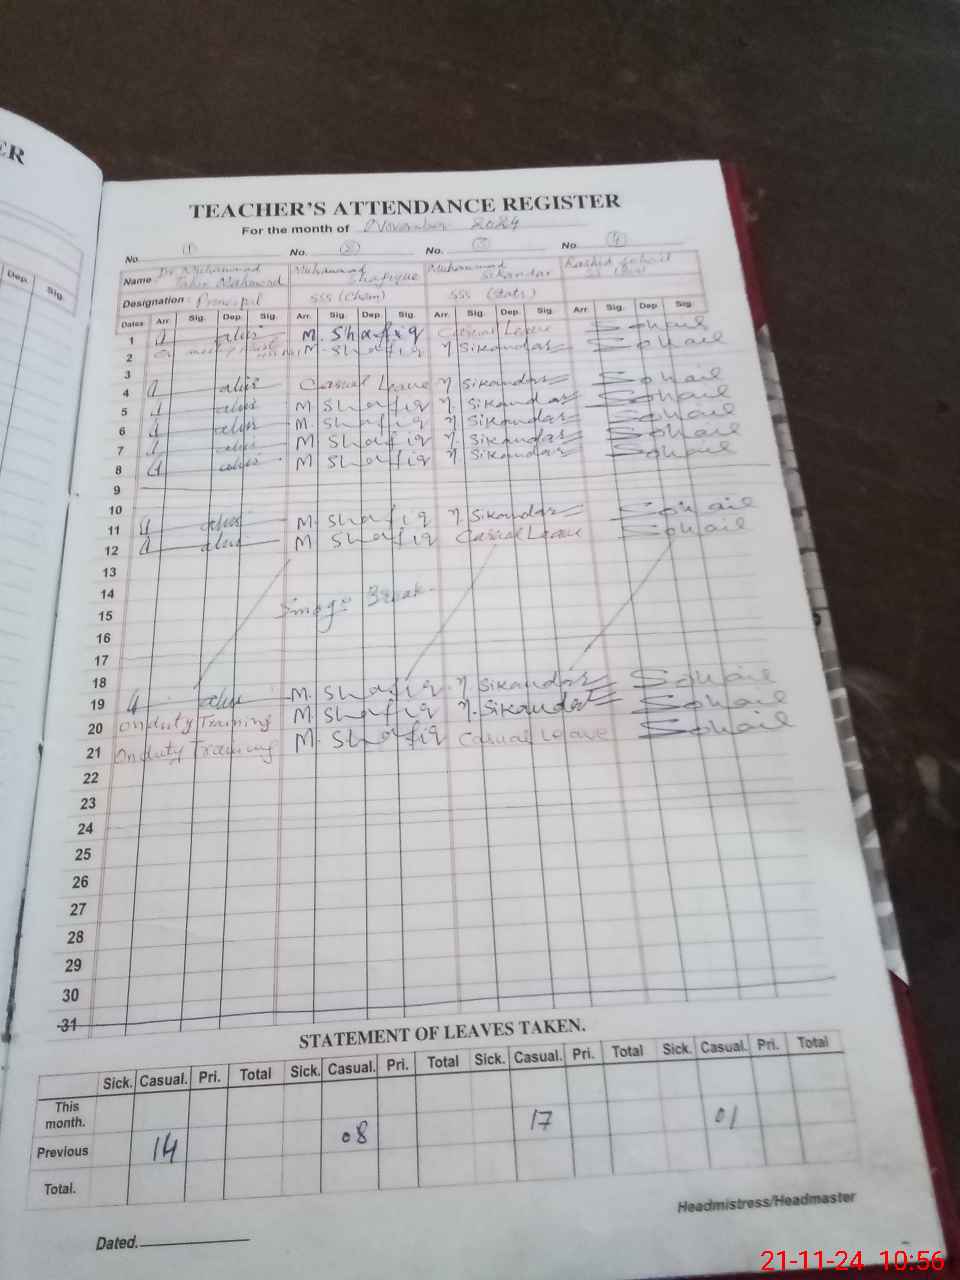 ER
Dep. Sig.
TEACHER'S ATTENDANCE REGISTER
For the month of November 2024
No. 1 No. 2 No. 3 No. 4
Name : Dr Muhammad Tahir Mahmood Muhammad Shafique Muhammad Sikandar Rashid Sohail
Designation : Principal SSS (Chem) SSS (Stats)
Dates Arr. Sig. Dep. Sig. Arr. Sig. Dep Sig. Arr. Sig. Dep. Sig. Arr Sig. Dep Sig.
1 M. Shafiq Casual Leave Sohail
2 M. Shafiq M Sikandar Sohail
3
4 Casual Leave M Sikandar Sohail
5 M Shafiq M Sikandar Sohail
6 M Shafiq M Sikandar Sohail
7 M Shafiq M Sikandar Sohail
8 M Shafiq M Sikandar Sohail
9
10
11 M. Shafiq M Sikandar Sohail
12 M Shafiq Casual Leave Sohail
13
14
15 Smoge Break.
16
17
18
19 M. Shafiq M Sikandar Sohail
20 On duty Training M Shafiq M. Sikandar Sohail
21 On duty Training M. Shafiq Casual Leave Sohail
22
23
24
25
26
27
28
29
30
31
STATEMENT OF LEAVES TAKEN.
Sick. Casual. Pri. Total Sick. Casual. Pri. Total Sick. Casual. Pri. Total Sick. Casual. Pri. Total
This month.
Previous 14 08 17 01
Total.
Headmistress/Headmaster
Dated.
21-11-24 10:56